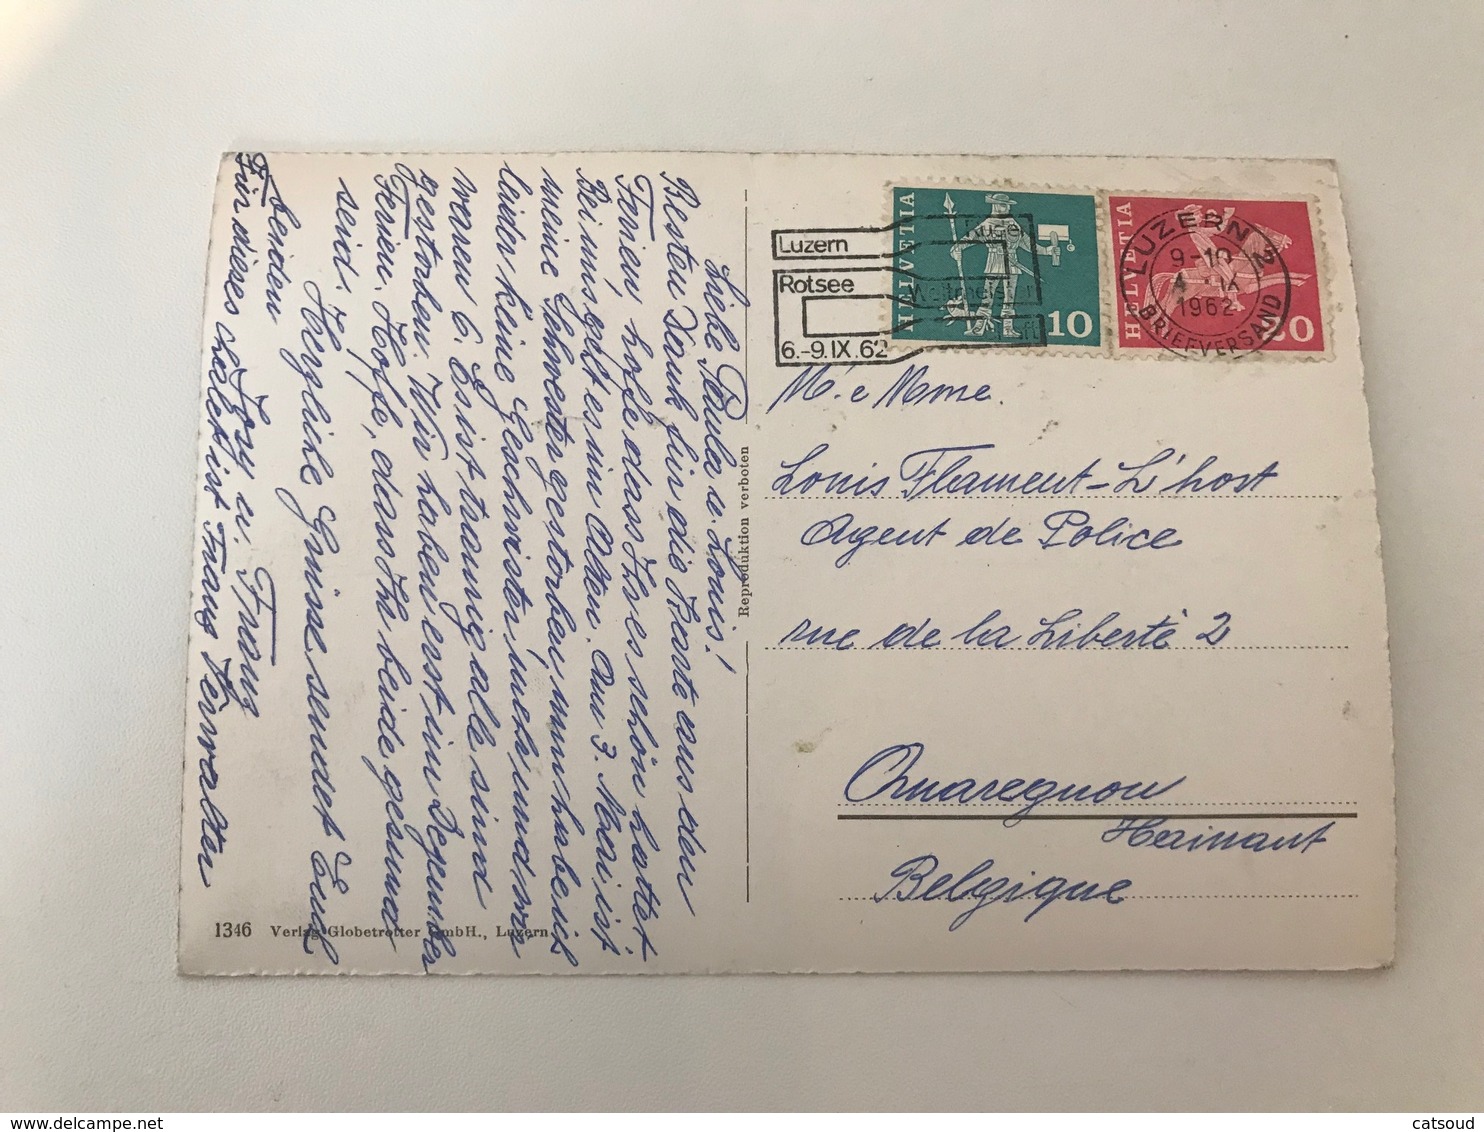 Liebe Paula u. Louis!
Besten Dank für die Karte aus den
Ferien, hoffe dass Ihr es schön hattet
Bei uns geht es im Alten. Am 3. Mai ist
meine Schwester gestorben, nun habe ich
leider keine Geschwister mehr und wir
waren 6. Es ist traurig alle sind
gestorben. Wir haben erst im Dezember
Ferien. Hoffe, dass Ihr beide gesund
seid.
Herzliche Grüsse sendet Euch
beiden
u. Franz
Für dieses ist Franz Verwalter
1346 Verlag Globetrotter GmbH., Luzern
Reproduktion verboten
Luzern
Rotsee
6.-9.IX.62
Ruder
Weltmeister
HELVETIA
10
HELVETIA
LUZERN 2
9-10
4. IX
1962
BRIEFVERSAND
M. e Mme.
Louis Flament-L'host
Agent de Police
rue de la Liberté 2
Quaregnon
Hainaut
Belgique
catsoud